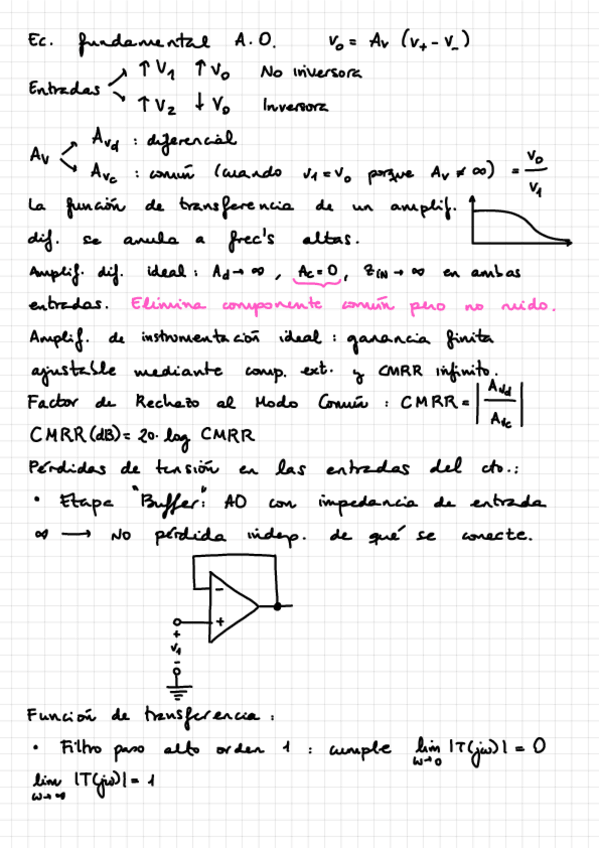 Ec. fundamental A.O. v₀ = Aᵥ (v₊ - v₋)
Entradas ↑V₁ ↑V₀ No inversora
↑V₂ ↓V₀ Inversora
Aᵥ Aᵥd : diferencial
Aᵥc : común (cuando v₁=v₀ porque Aᵥ ≠ ∞) = V₀/V₁
La función de transferencia de un amplif.
dif. se anula a frec's altas.
Amplif. dif. ideal : Ad→∞, Ac=0, ZIN→∞ en ambas
entradas. Elimina componente común pero no ruido.
Amplif. de instrumentación ideal : ganancia finita
ajustable mediante comp. ext. y CMRR infinito.
Factor de Rechazo al Modo Común : CMRR = |Aᵥd/Aᵥc|
CMRR(dB) = 20· log CMRR
Pérdidas de tensión en las entradas del cto.:
• Etapa "Buffer": AO con impedancia de entrada
∞ → No pérdida indep. de qué se conecte.
-
+
+
V₁
-
Función de transferencia :
• Filtro paso alto orden 1 : cumple lim w→0 |T(jω)| = 0
lim w→∞ |T(jω)| = 1